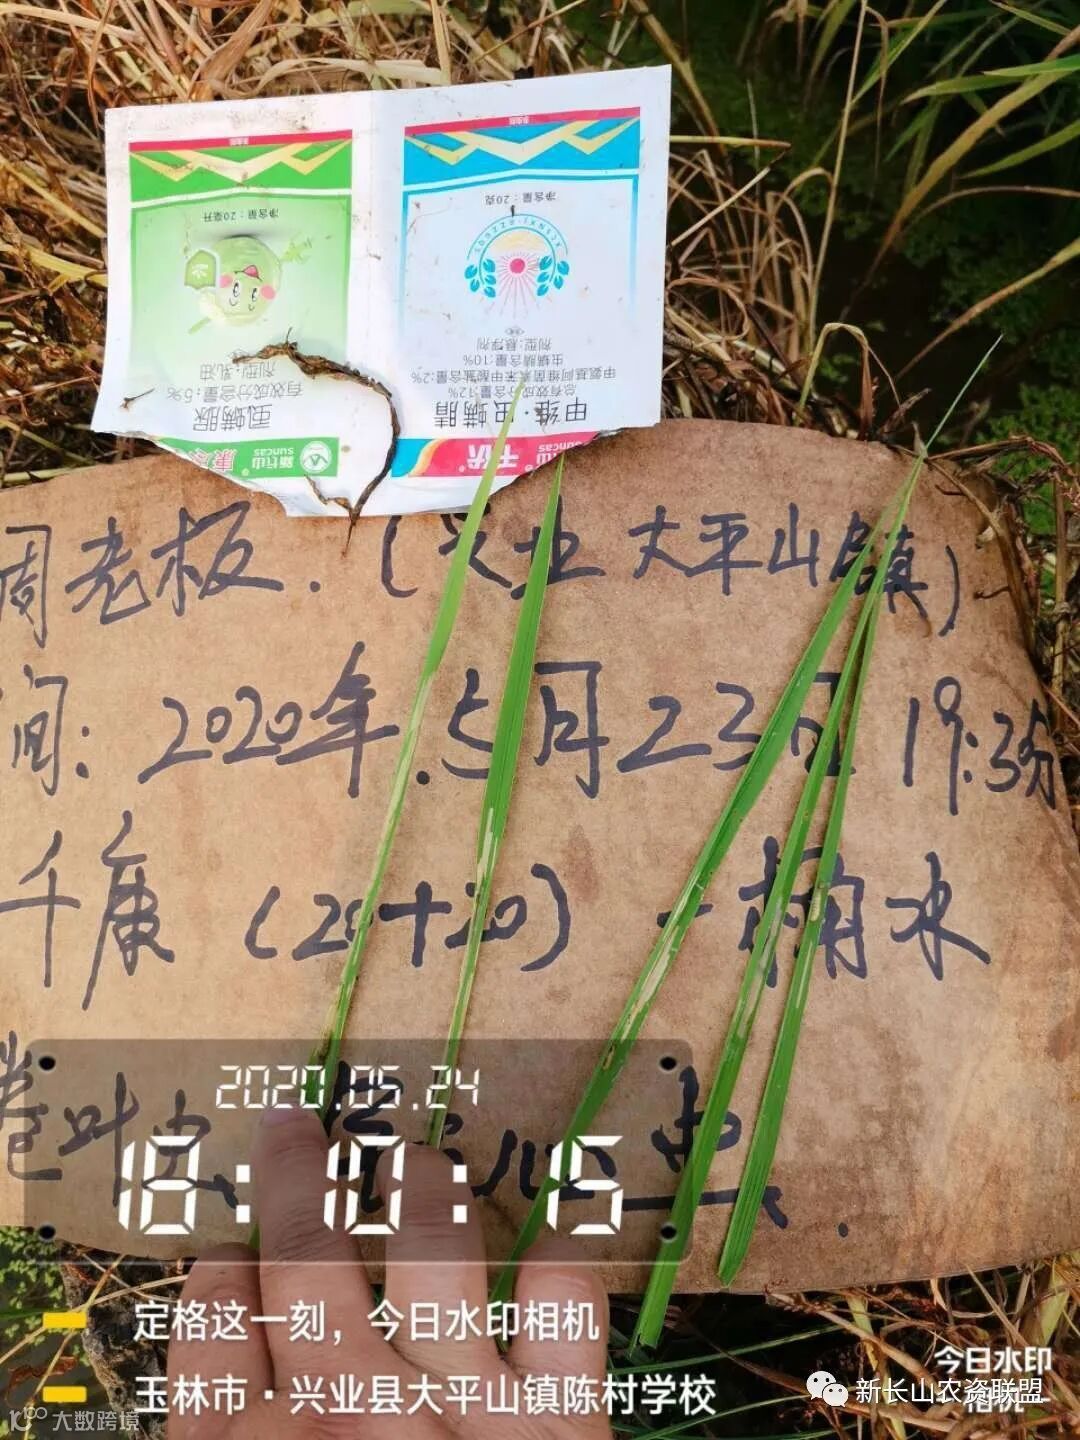 净含量:20毫升
虱螨脲
有效成分含量:5%
剂型:乳油
新长山
suncas
康
净含量:20克
甲维·虫螨腈
总有效成分含量:12%
甲氨基阿维菌素苯甲酸盐含量:2%
虫螨腈含量:10%
剂型:悬浮剂
千伏
suncas
周老板.(兴业大平山镇)
间:2020年.5月23日19:3分
千康(20+20)一桶水
卷叶虫、
心虫、.
2020.05.24
18:10:15
定格这一刻，今日水印相机
玉林市·兴业县大平山镇陈村学校
今日水印
相机
新长山农资联盟
大数跨境